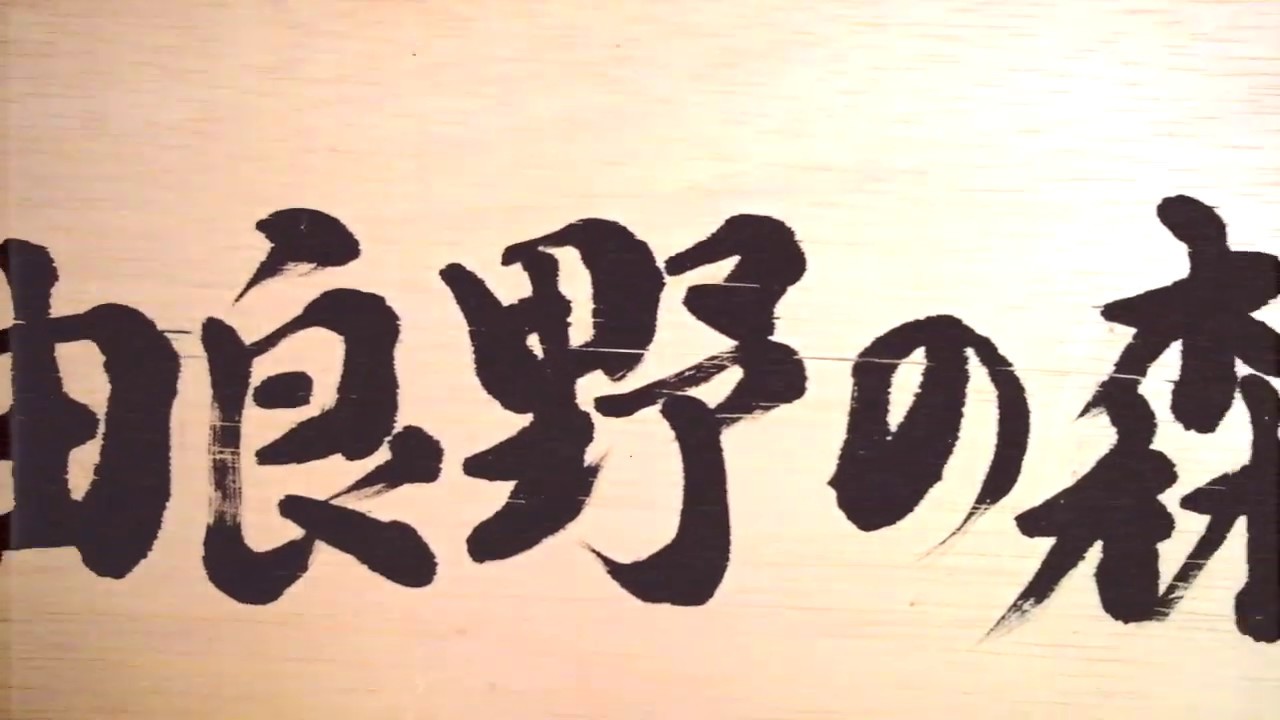 由良野の森